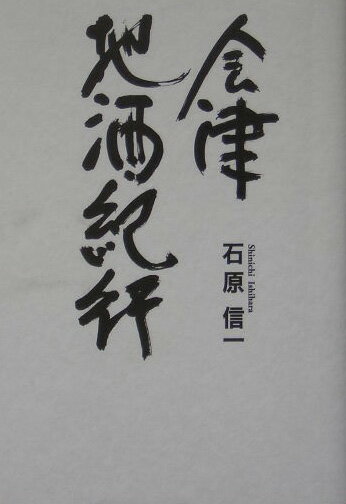 会津
地酒紀行
石原信一
Shinichi Ishihara